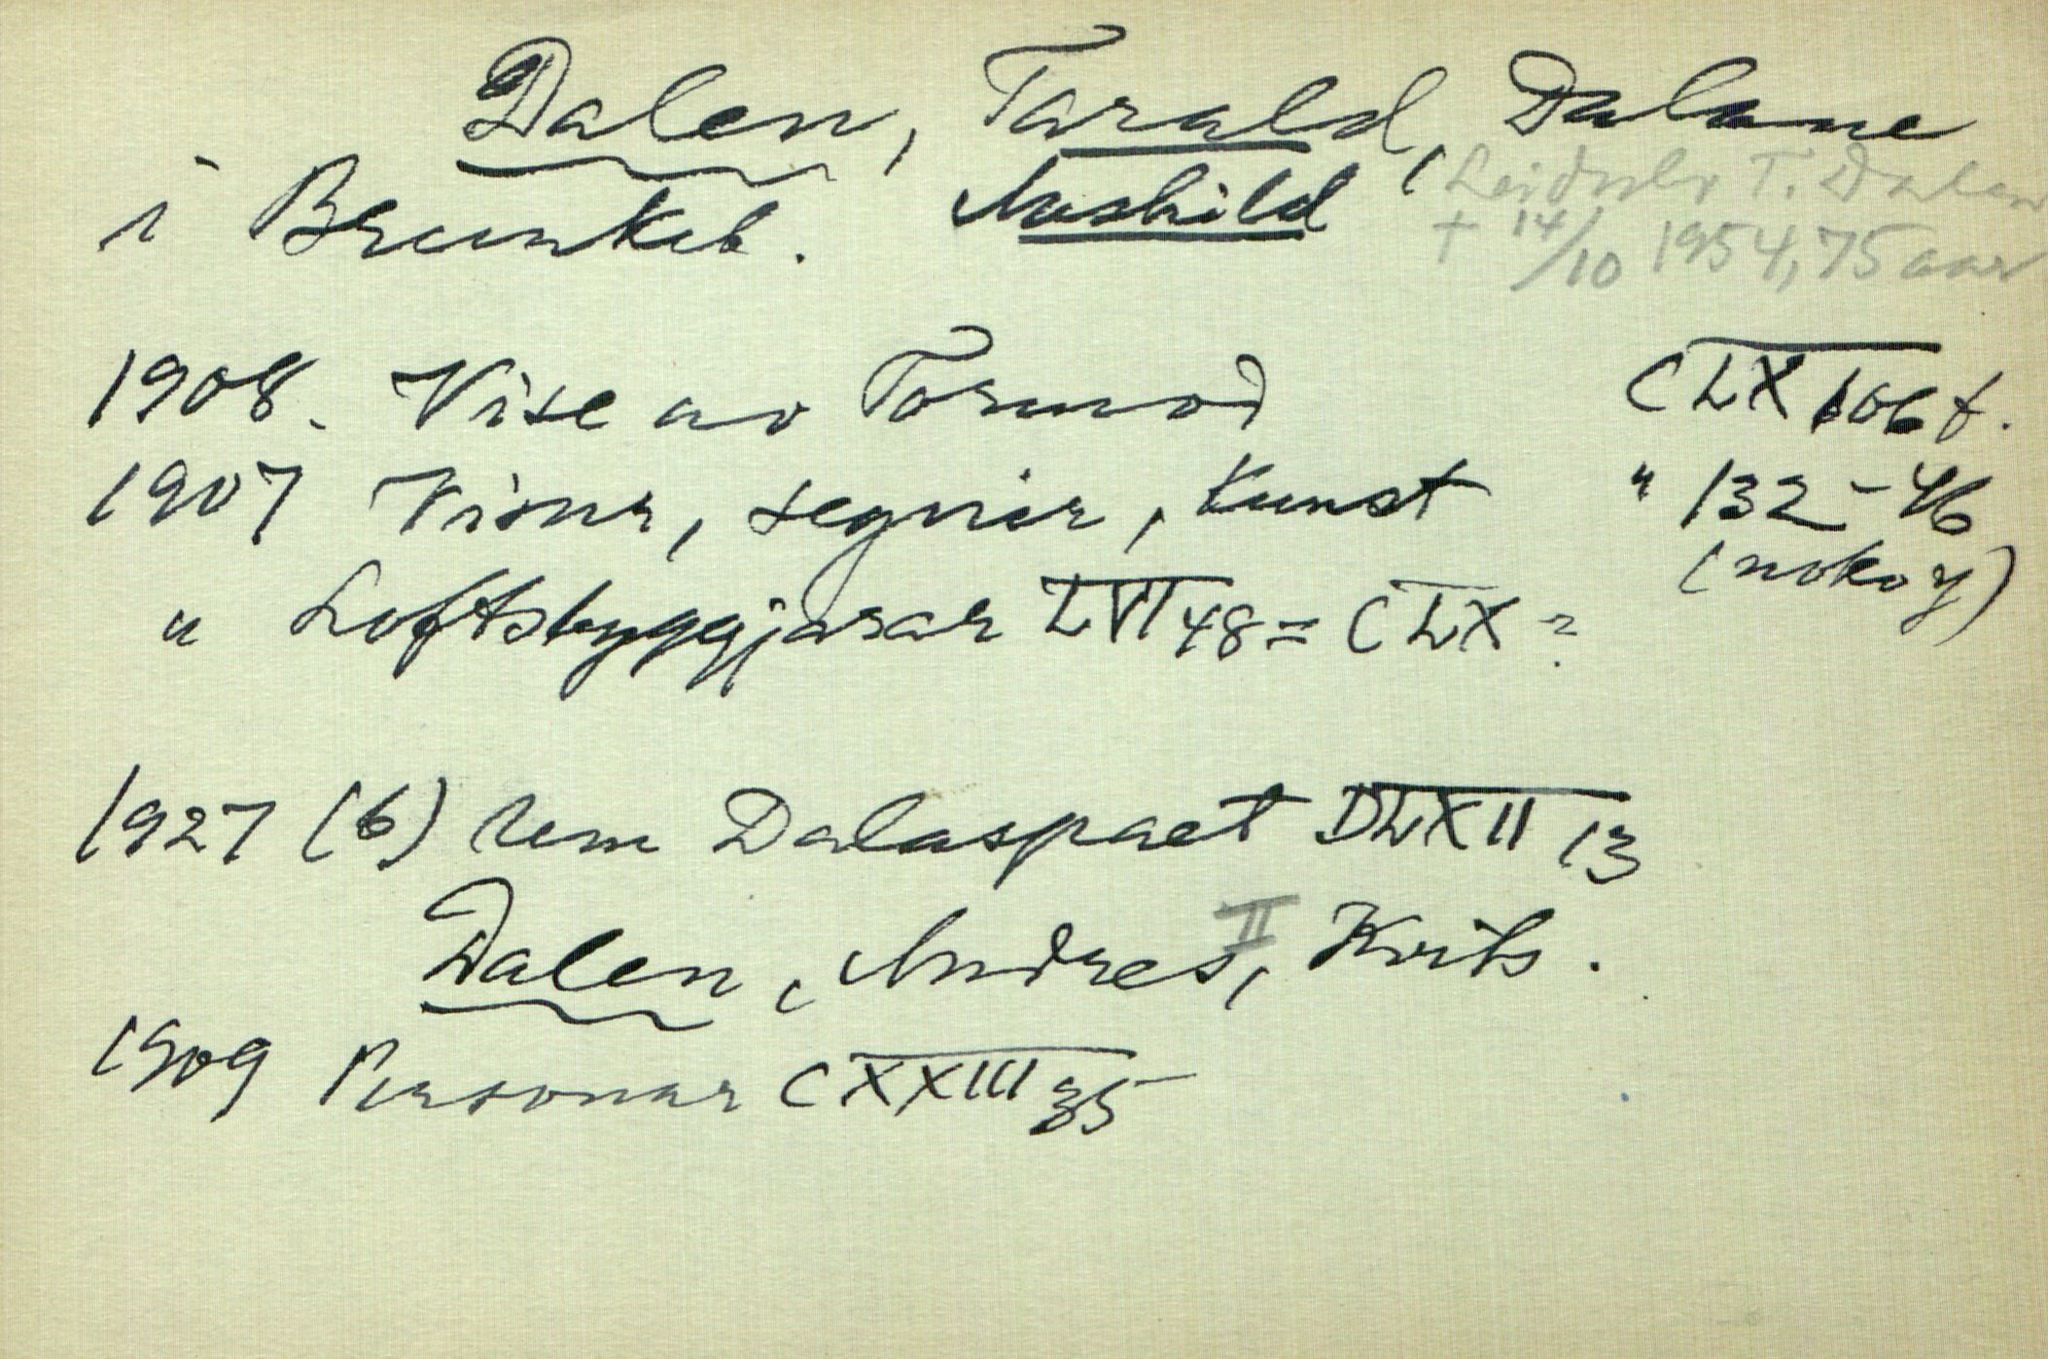 Dalen, Tarald, Dalane
i Brunkeb. Aashild (Leidulv T. Dalen
† 14/10 1954, 75 aar
1908. Vise av Tormod CLX 106 f.
1907 Visur, segnir, kunst " 132-46
(noko y)
" Loftsbyggjarar LVI 48 = CLX ?
1927 (6) Um Dalaspaet DLXII 13
Dalen, Andres II, Kvits.
1909 Personar CXXIII 35